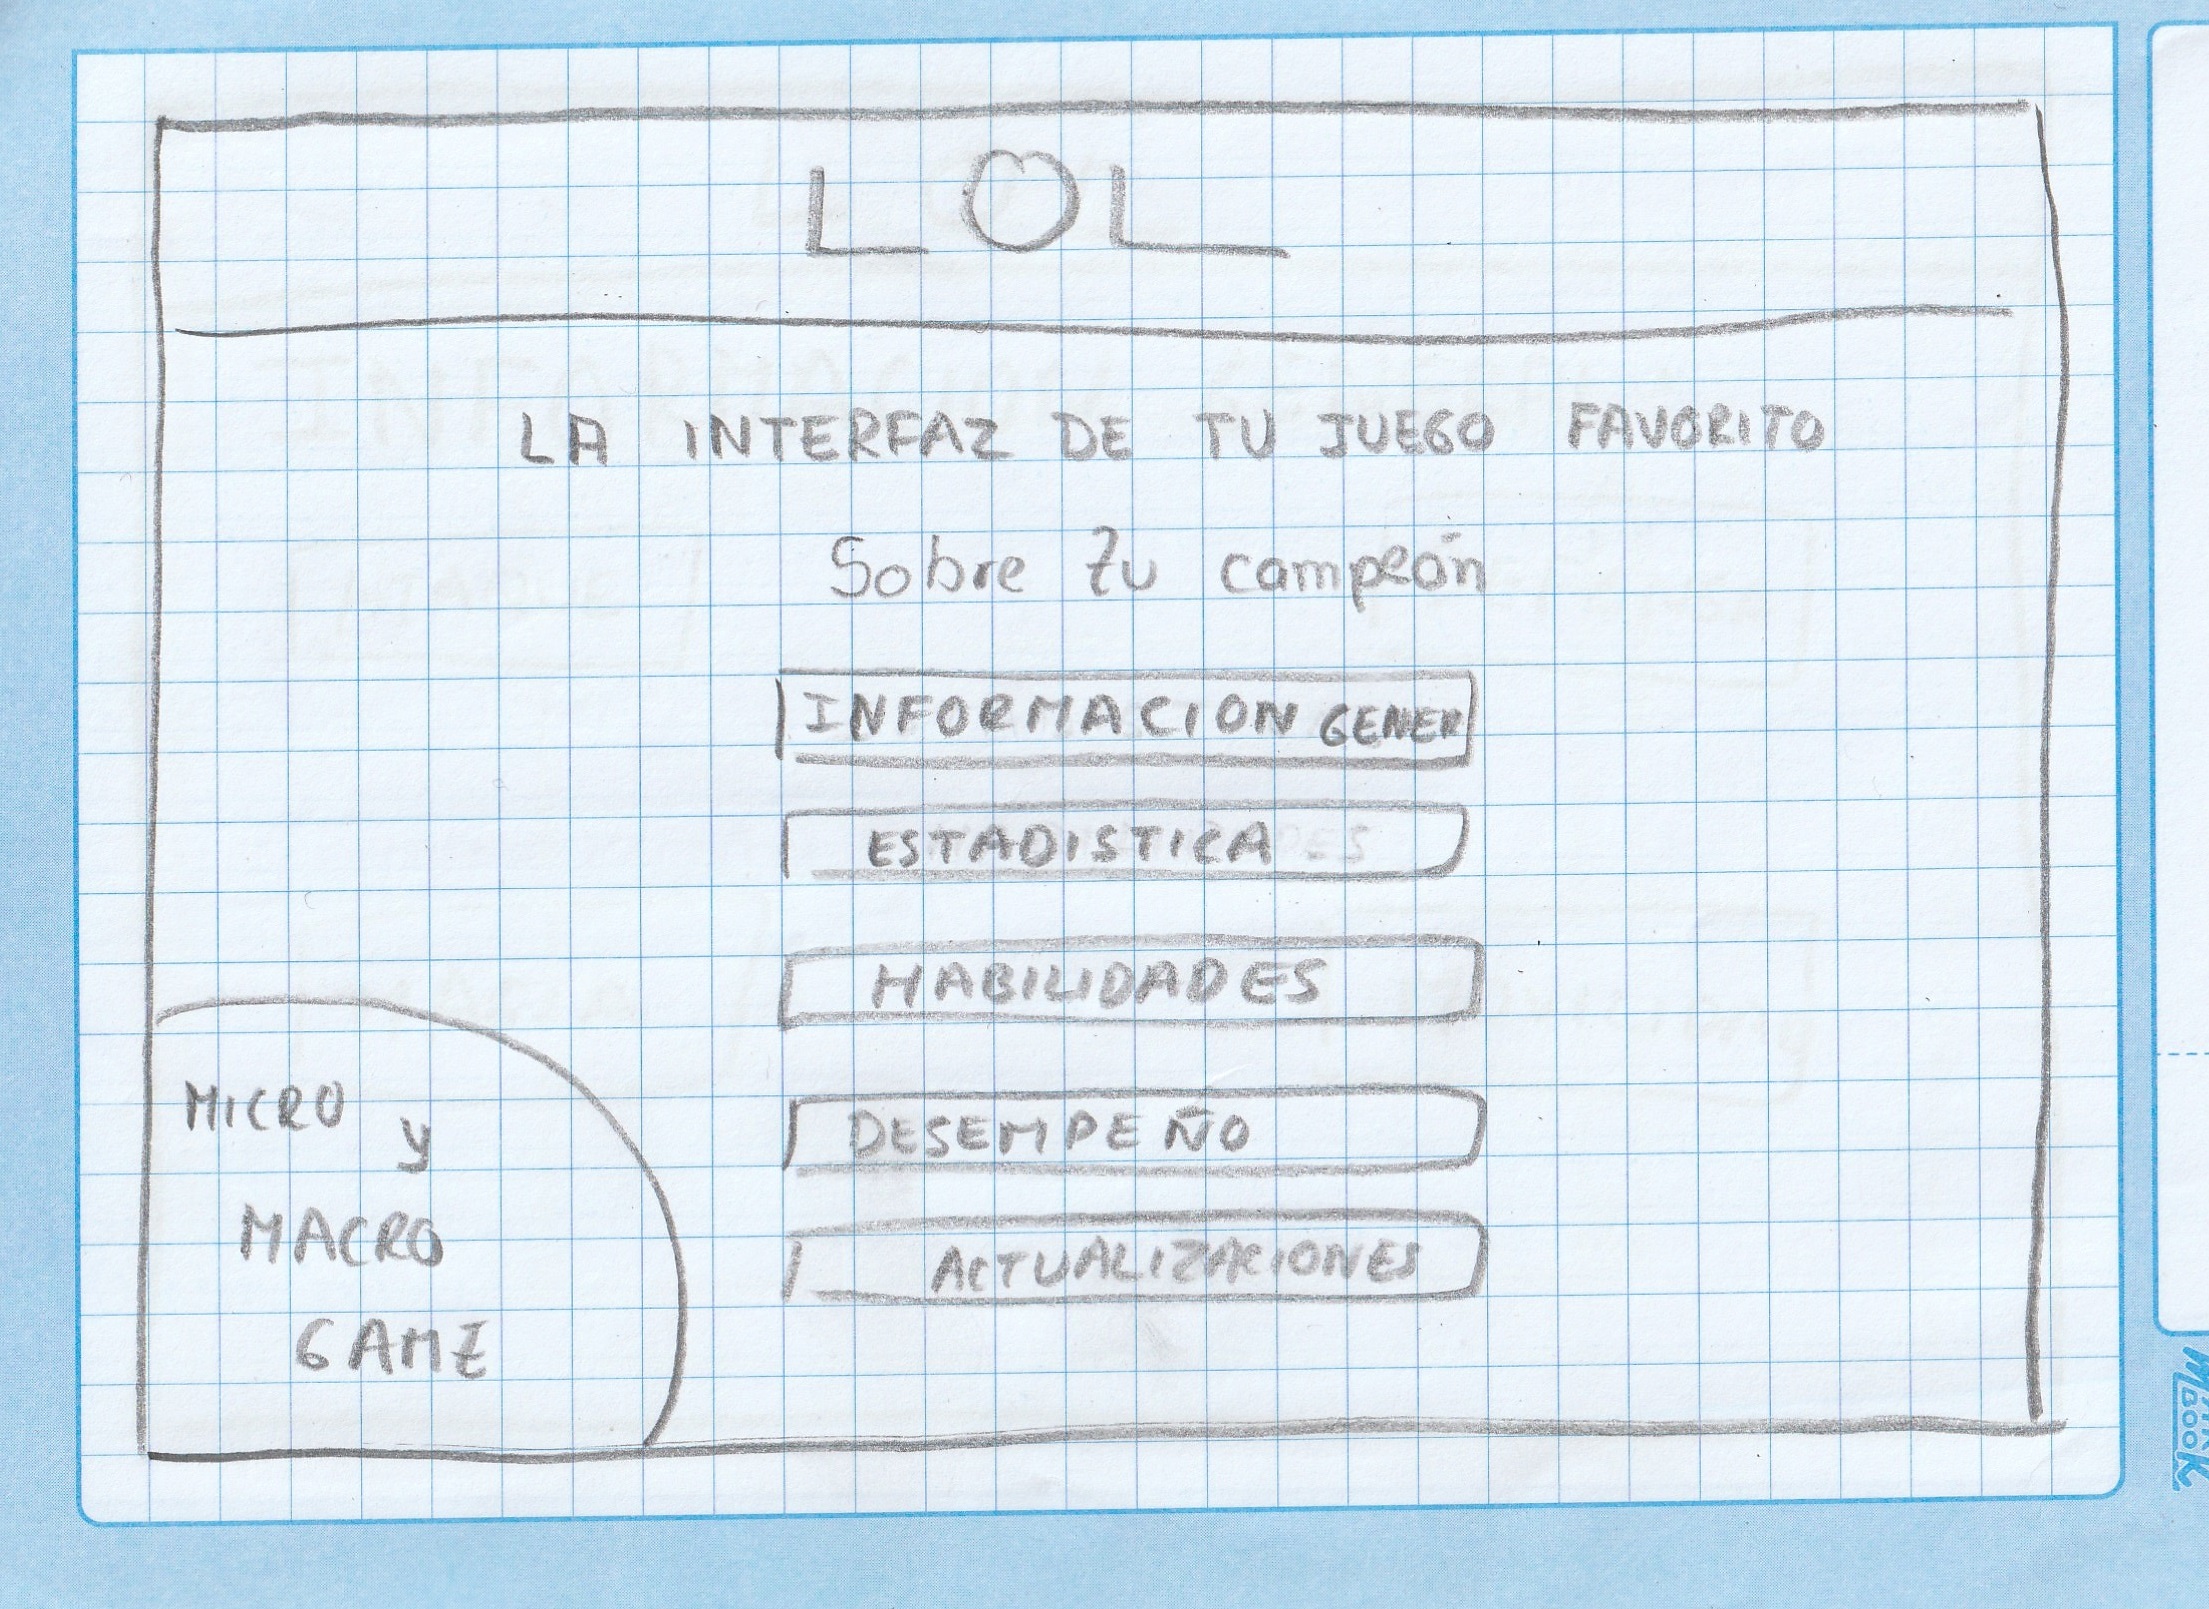 LOL
LA INTERFAZ DE TU JUEGO FAVORITO
Sobre tu campeón
INFORMACION GENER
ESTADISTICA
HABILIDADES
DESEMPEÑO
ACTUALIZACIONES
MICRO y
MACRO
GAME
BOOK